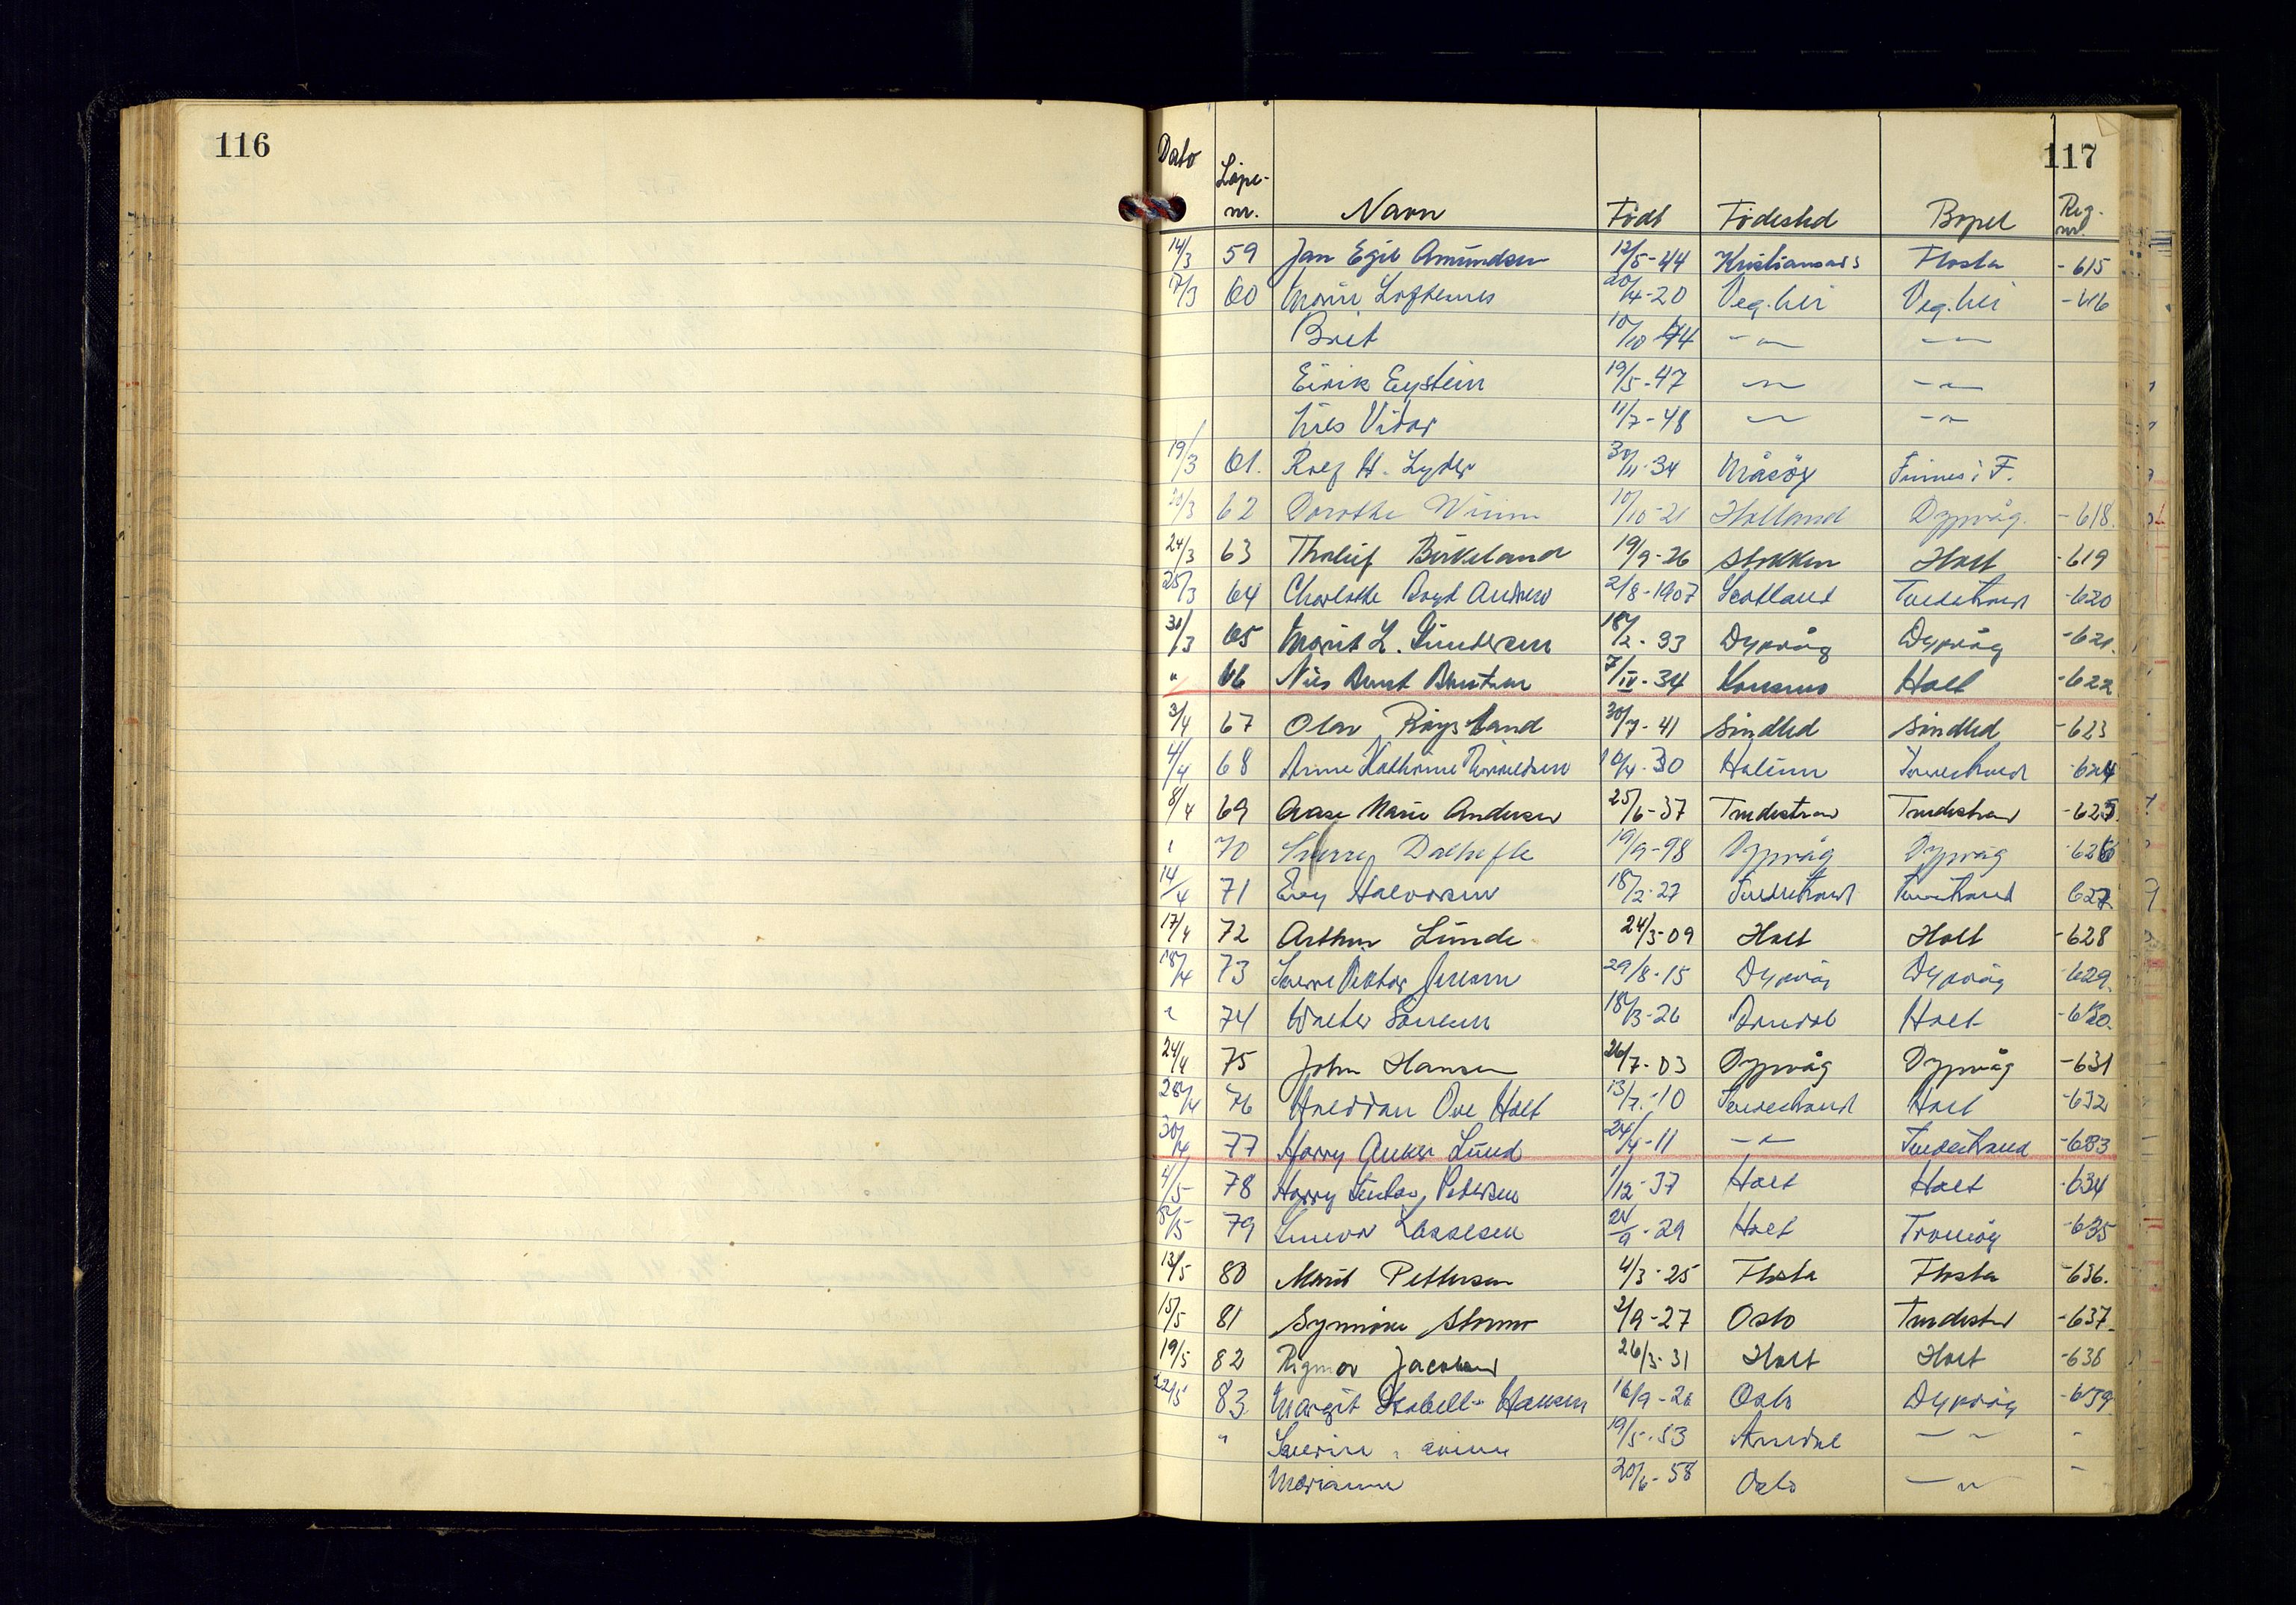 116
117
Dato Løpe-nr. Navn Født Fødested Bopel Reg. nr.
14/3 59 Jan Egil Amundsen 12/5-44 Kristiansand s Flosta -615
17/3 60 20/4-20 Veg.hei Veg.hei -616
Brit 10/10-44 -"- -"-
Eirik Eystein 19/5-47 -"- -"-
Vidar 11/7-48 -"- -"-
19/3 61. Rolf H. Lyder 30/11-34 Måsøy i F.
20/3 62 Dorothe 10/10-21 Holland Dypvåg. -618.
24/3 63 Thoralf Birkeland 19/9-26 Stokken Holt -619
25/3 64 Charlotte Boyd Andrew 2/8-1907 Scotland Tvedestrand -620
31/3 65 Marit L. Gundersen 18/2-33 Dypvåg Dypvåg -621.
" 66 Nils 7/IV-34 Holt -622
3/4 67 Olav Røysland 30/7-41 Søndled Søndled -623
4/4 68 Anne Kathrine 10/4-30 Tvedestrand -624
8/4 69 Aase Marie Andersen 25/6-37 Tvedestrand Tvedestrand -625.
" 70 19/9-98 Dypvåg Dypvåg -626
14/4 71 Evy Halvorsen 18/2-27 Tvedestrand Tvedestrand 627.
17/4 72 Arthur Lunde 24/3-09 Holt Holt -628
18/4 73 Sverre Viktor Jensen 29/8-15 Dypvåg Dypvåg -629.
" 74 Walter 18/3-26 Arendal Holt -630.
24/4 75 John Hansen 26/7-03 Dypvåg Dypvåg -631
28/4 76 Halvdan Ove Holt 13/7-10 Tvedestrand Holt -632
30/4 77 Harry Anker Lund 24/4-11 -"- Tvedestrand -633
4/5 78 Harry Gustav Pedersen 1/12-37 Holt Holt -634
8/5 79 Gunvor Lassesen 24/9-29 Holt Tromøy -635
13/5 80 Marit Pettersen 4/3-25 Flosta Flosta -636.
15/5 81 Synnøve Stormo 2/9-27 Oslo Tvedestrand -637.
19/5 82 Rigmor Jacobsen 26/3-31 Holt Holt -638
22/5 83 Margit Isabella Hansen 16/9-26 Oslo Dypvåg -639
" 19/5-53 Arendal -"- -
Marianne 20/6-58 Oslo -"- -